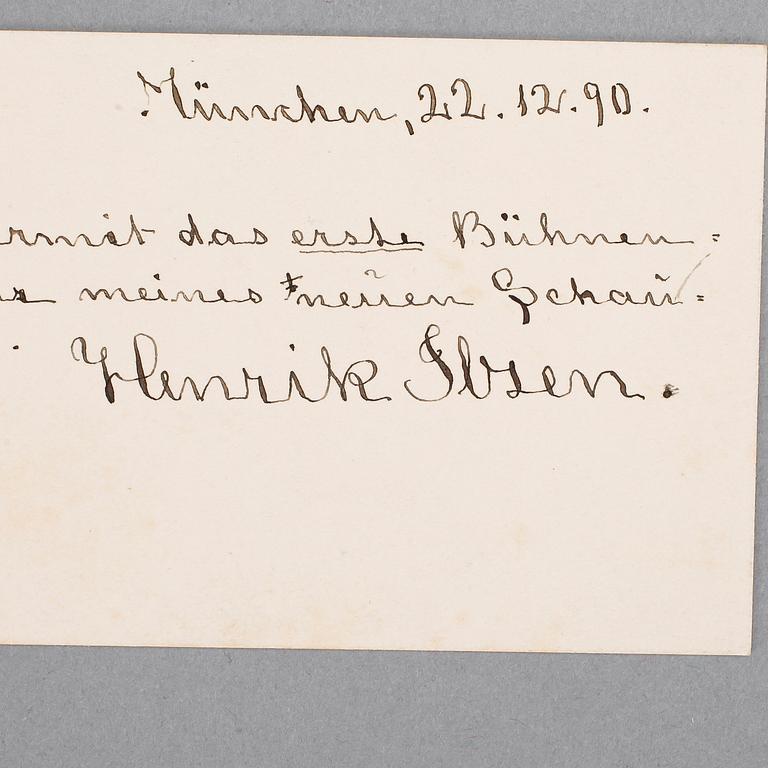 München, 22. 12. 90.
rmit das erste Bühnen=
meines neuen Schau=
Henrik Ibsen.